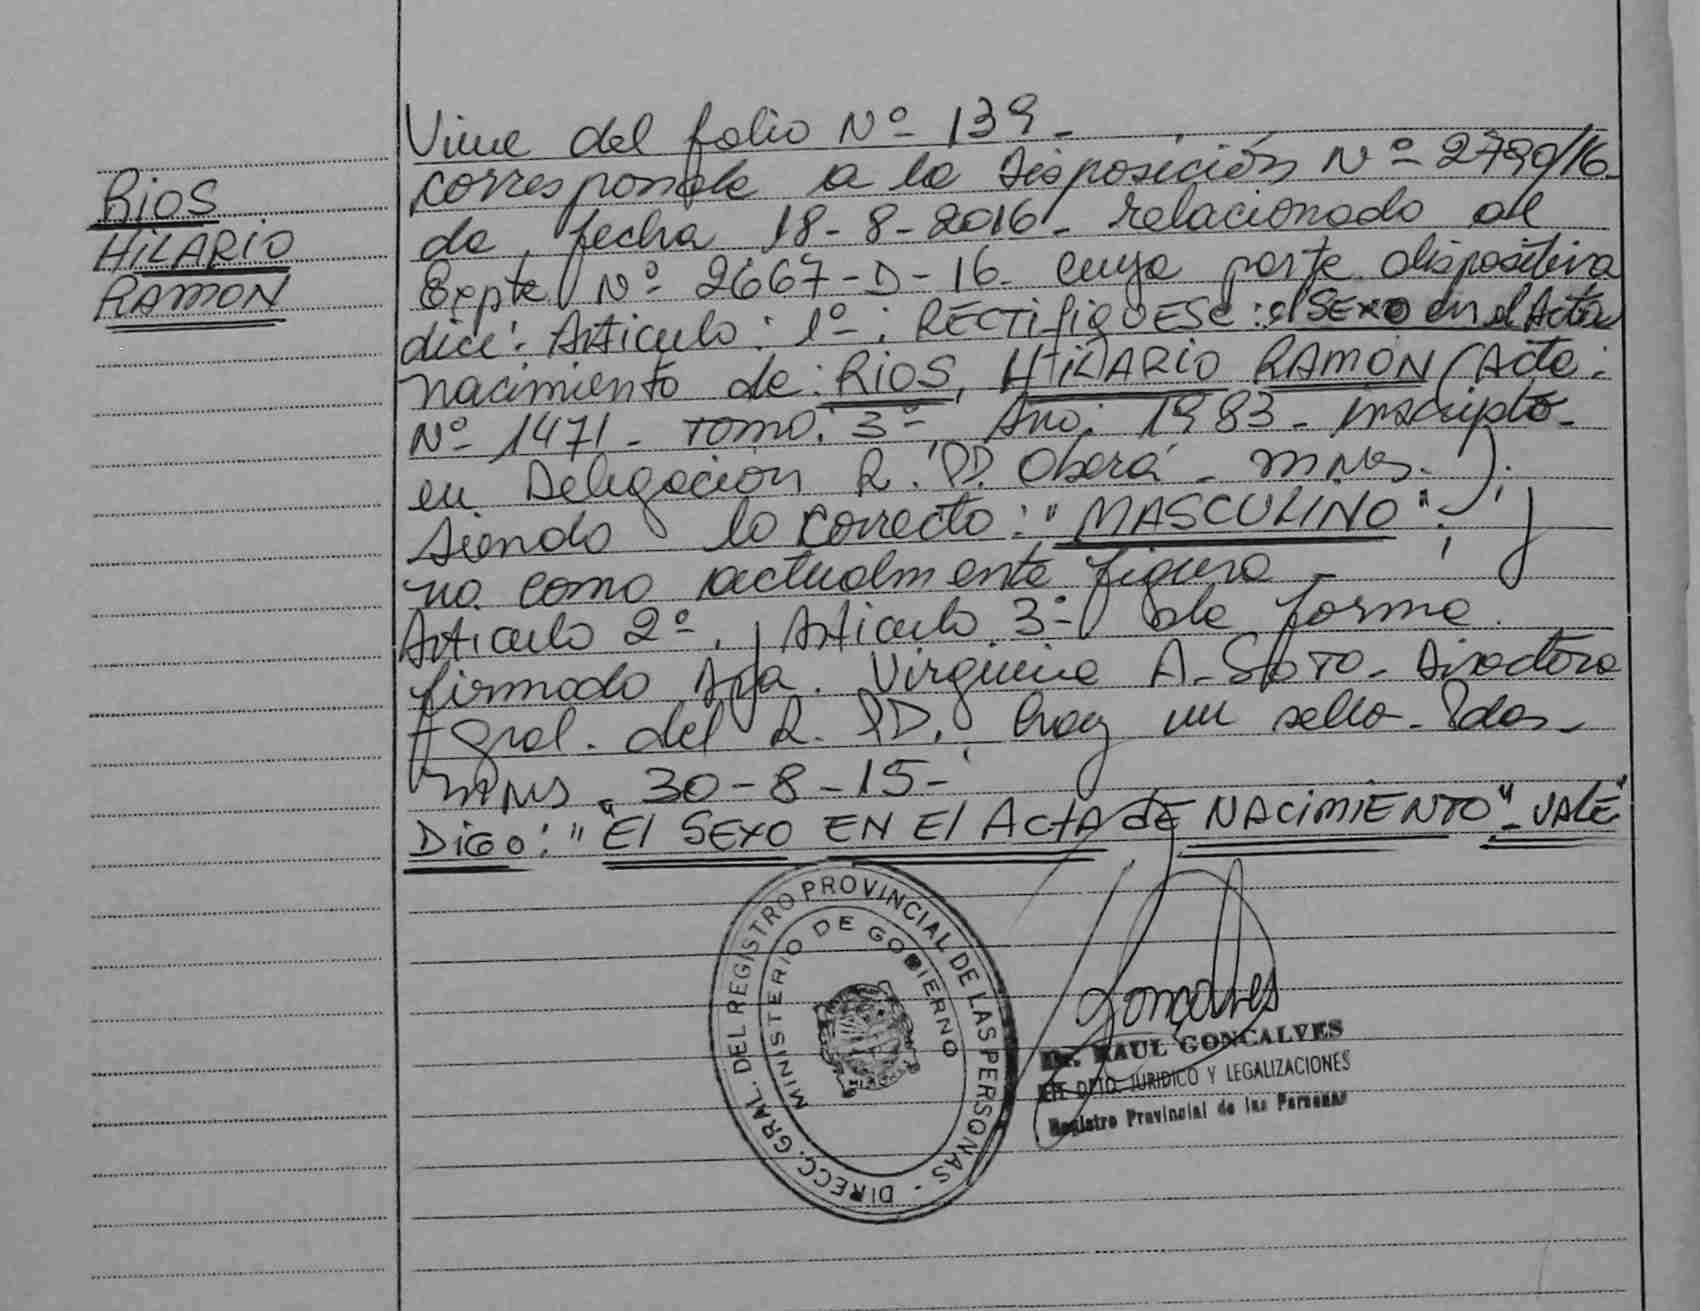 RIOS
HILARIO
RAMON
Viene del folio Nº 139-
corresponde a la Disposición Nº 2790/16-
de fecha 18-8-2016- relacionado al
Expte Nº 2667-D-16- cuya parte dispositiva
dice: Artículo: 1º: RECTIFIQUESE: el SEXO en el Acta
nacimiento de: RIOS, HILARIO RAMON (Acta:
Nº 1471- TOMO: 3º Año: 1983- inscripto-
en Delegación R.PP. Oberá- MNES-).
siendo lo correcto: "MASCULINO". y
no como actualmente figura-
Artículo 2º, Artículo 3º de forma
firmado Virginia A. SOTO- Directora
Gral. del R.PP. hay un sello- Pdas-
MNES, 30-8-15-
DIGO: "El SEXO EN El ActA dE NACIMIENTO"- VALE"
DIRECC. GRAL. DEL REGISTRO PROVINCIAL DE LAS PERSONAS -
MINISTERIO DE GOBIERNO
Gonçalves
Dr. RAUL GONCALVES
DPTO. JURIDICO Y LEGALIZACIONES
Registro Provincial de las Personas